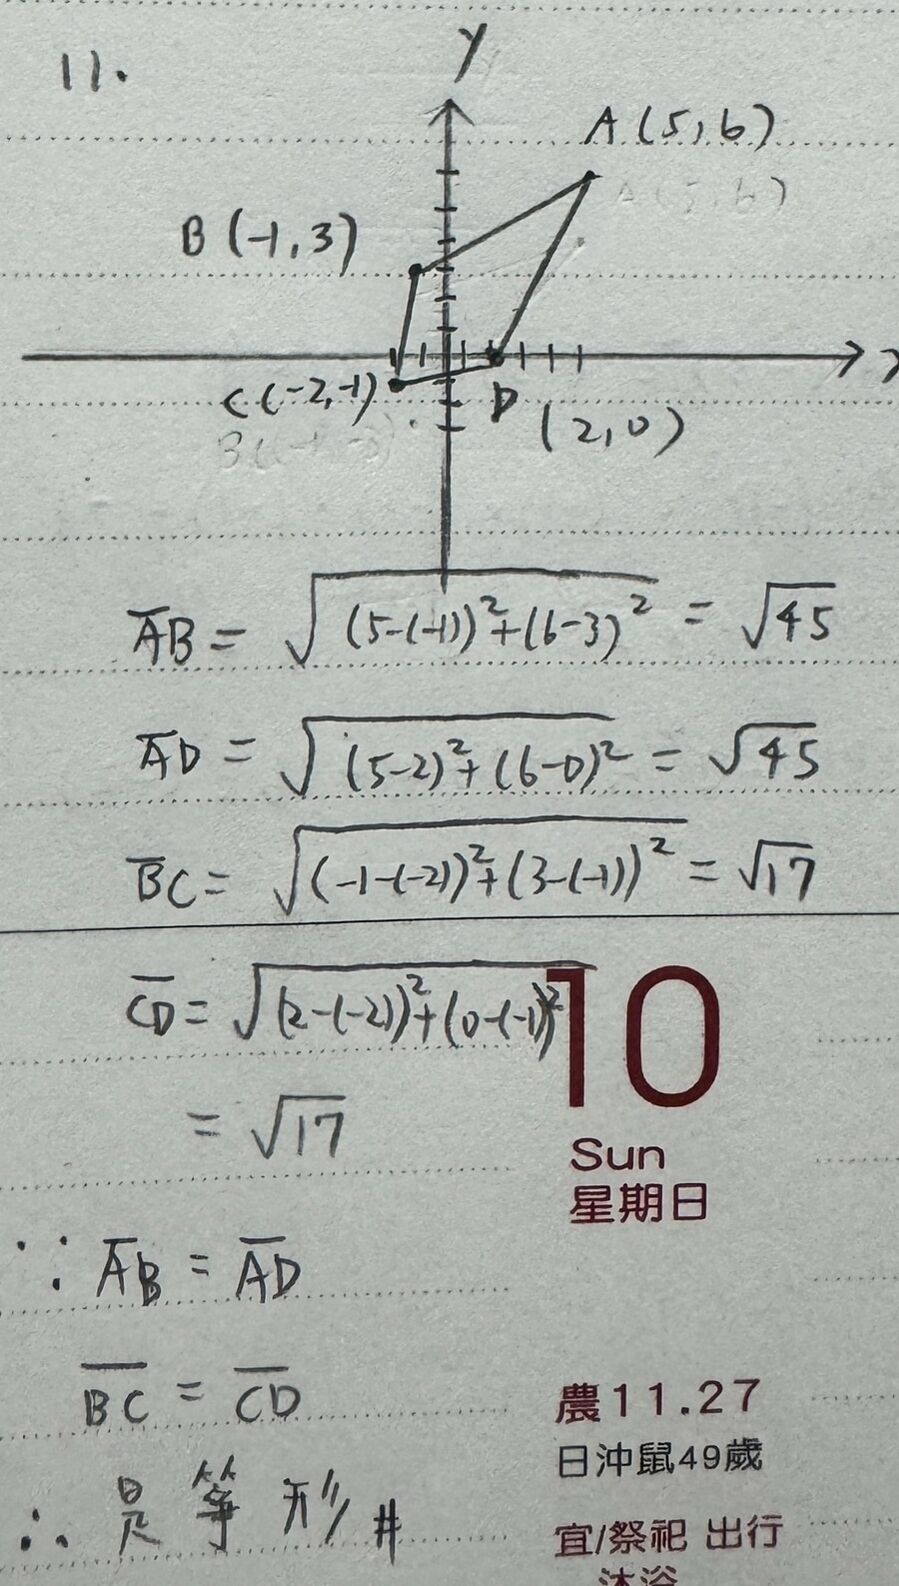 11.
y
A(5,6)
A(5,6)
B(-1,3)
C(-2,-1)
D
(2,0)
B(-1,3)
A̅B̅ = √((5-(-1))²+(6-3)²) = √45
A̅D̅ = √((5-2)²+(6-0)²) = √45
B̅C̅ = √((-1-(-2))²+(3-(-1))²) = √17
C̅D̅ = √((2-(-2))²+(0-(-1))²)
= √17
10
Sun
星期日
∵ A̅B̅ = A̅D̅
B̅C̅ = C̅D̅
農11.27
日沖鼠49歲
∴ 是箏形 #
宜/祭祀 出行
沐浴